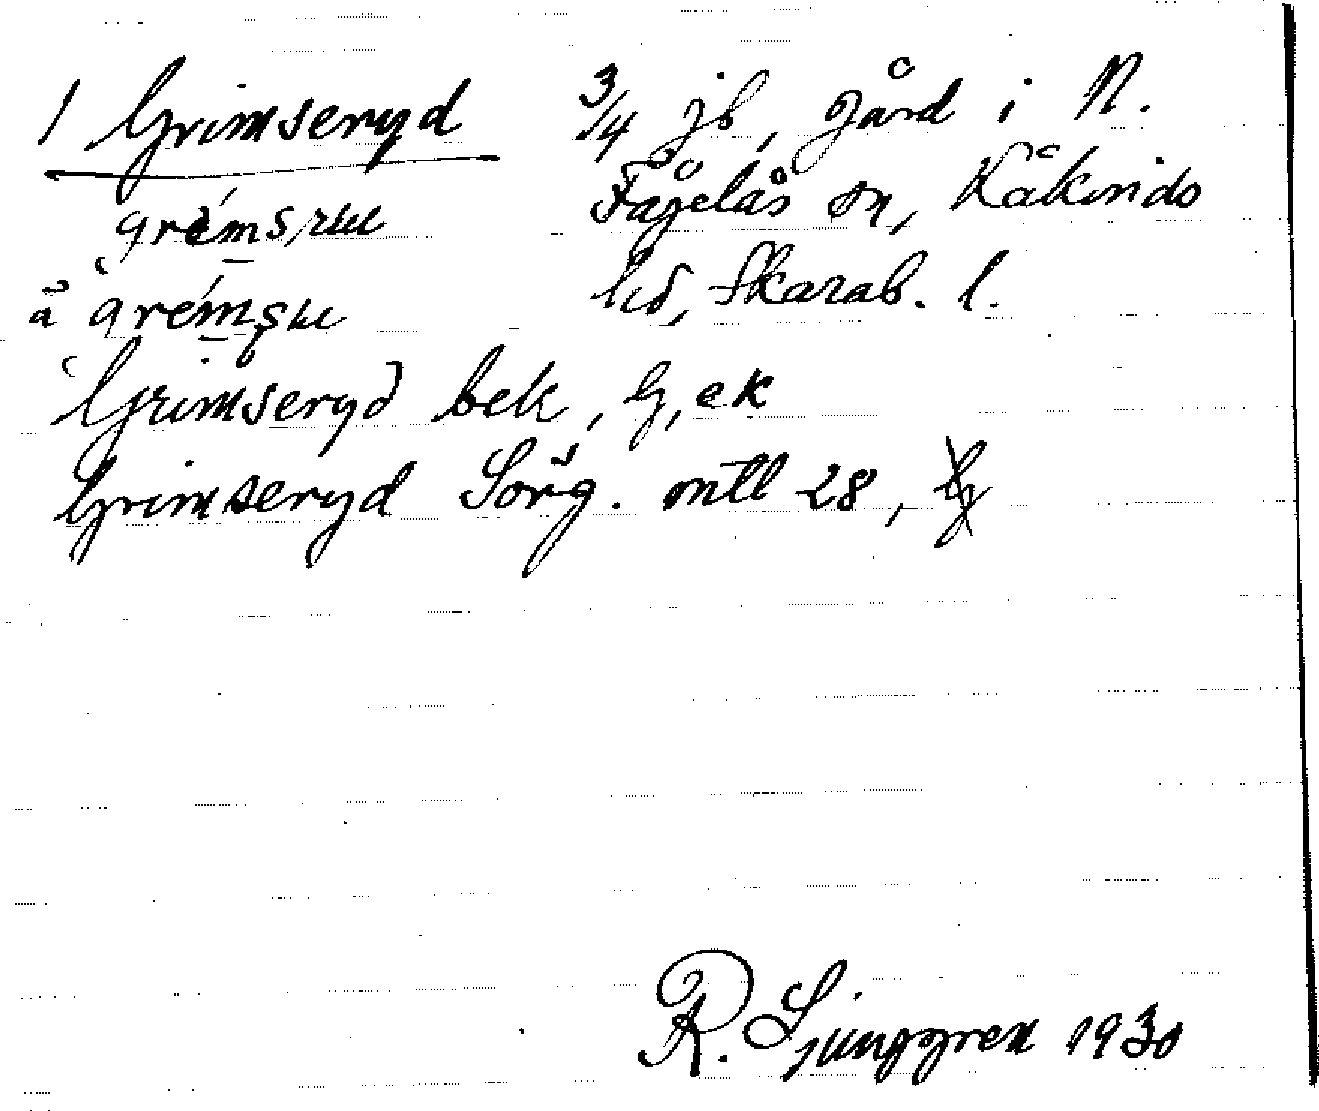 1 Grimseryd 3/4 jb, gård i N.
Fågelås sn, Kåkinds
hd, Skarab. l.
å
Grimseryd bek, G, ek
Grimseryd Sörg. mtl 28, G
R. Ljunggren 1930